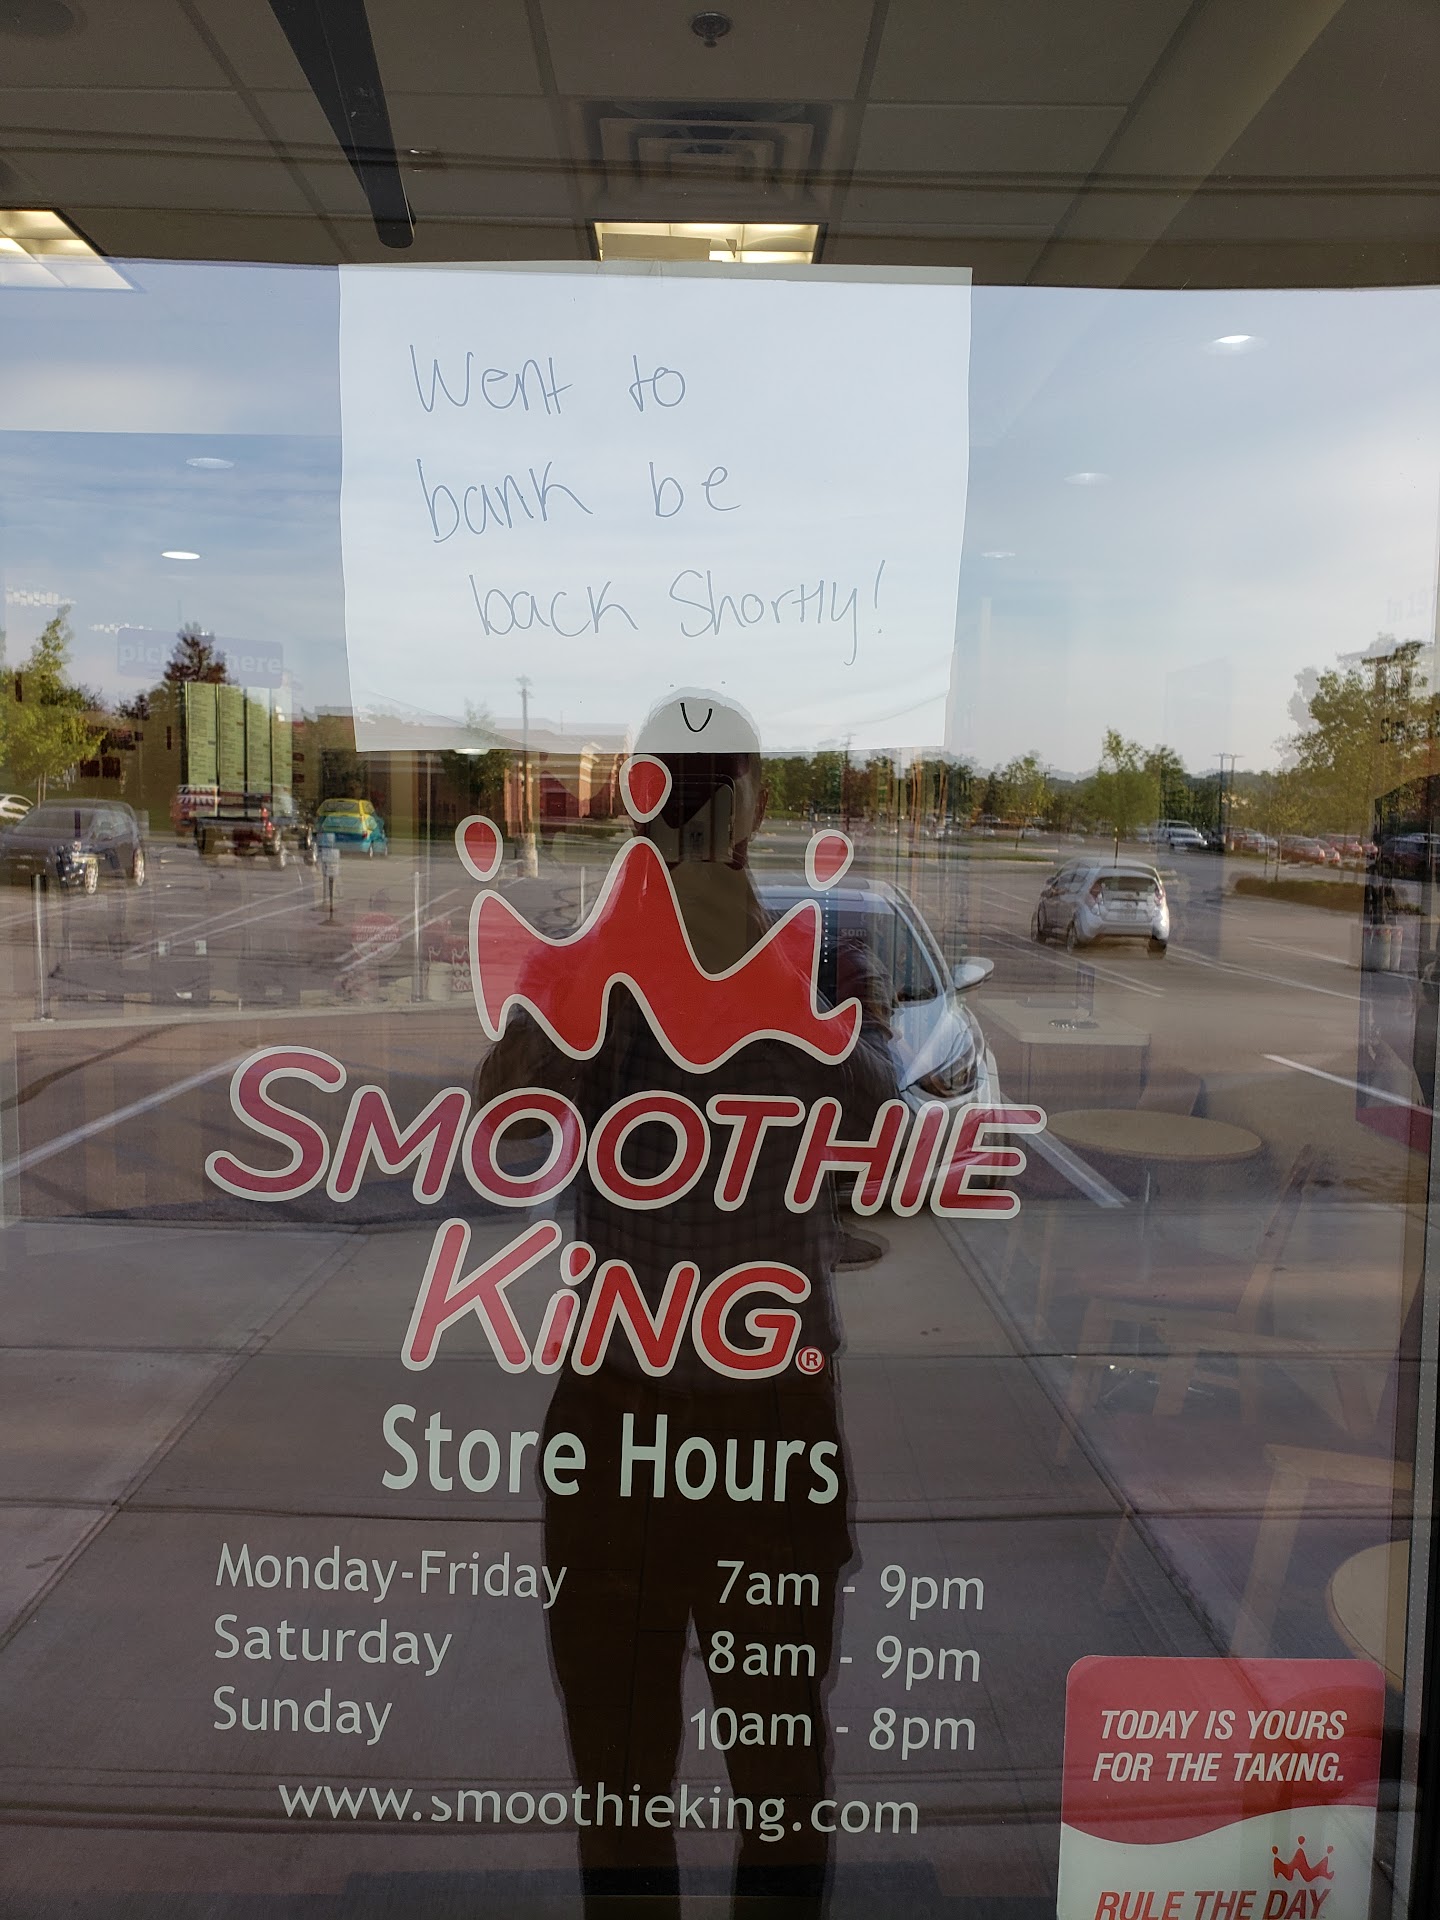 Went to
bank be
back Shortly!
SMOOTHIE
KiNG®
Store Hours
Monday-Friday 7am - 9pm
Saturday 8am - 9pm
Sunday 10am - 8pm
www.smoothieking.com
TODAY IS YOURS
FOR THE TAKING.
RULE THE DAY